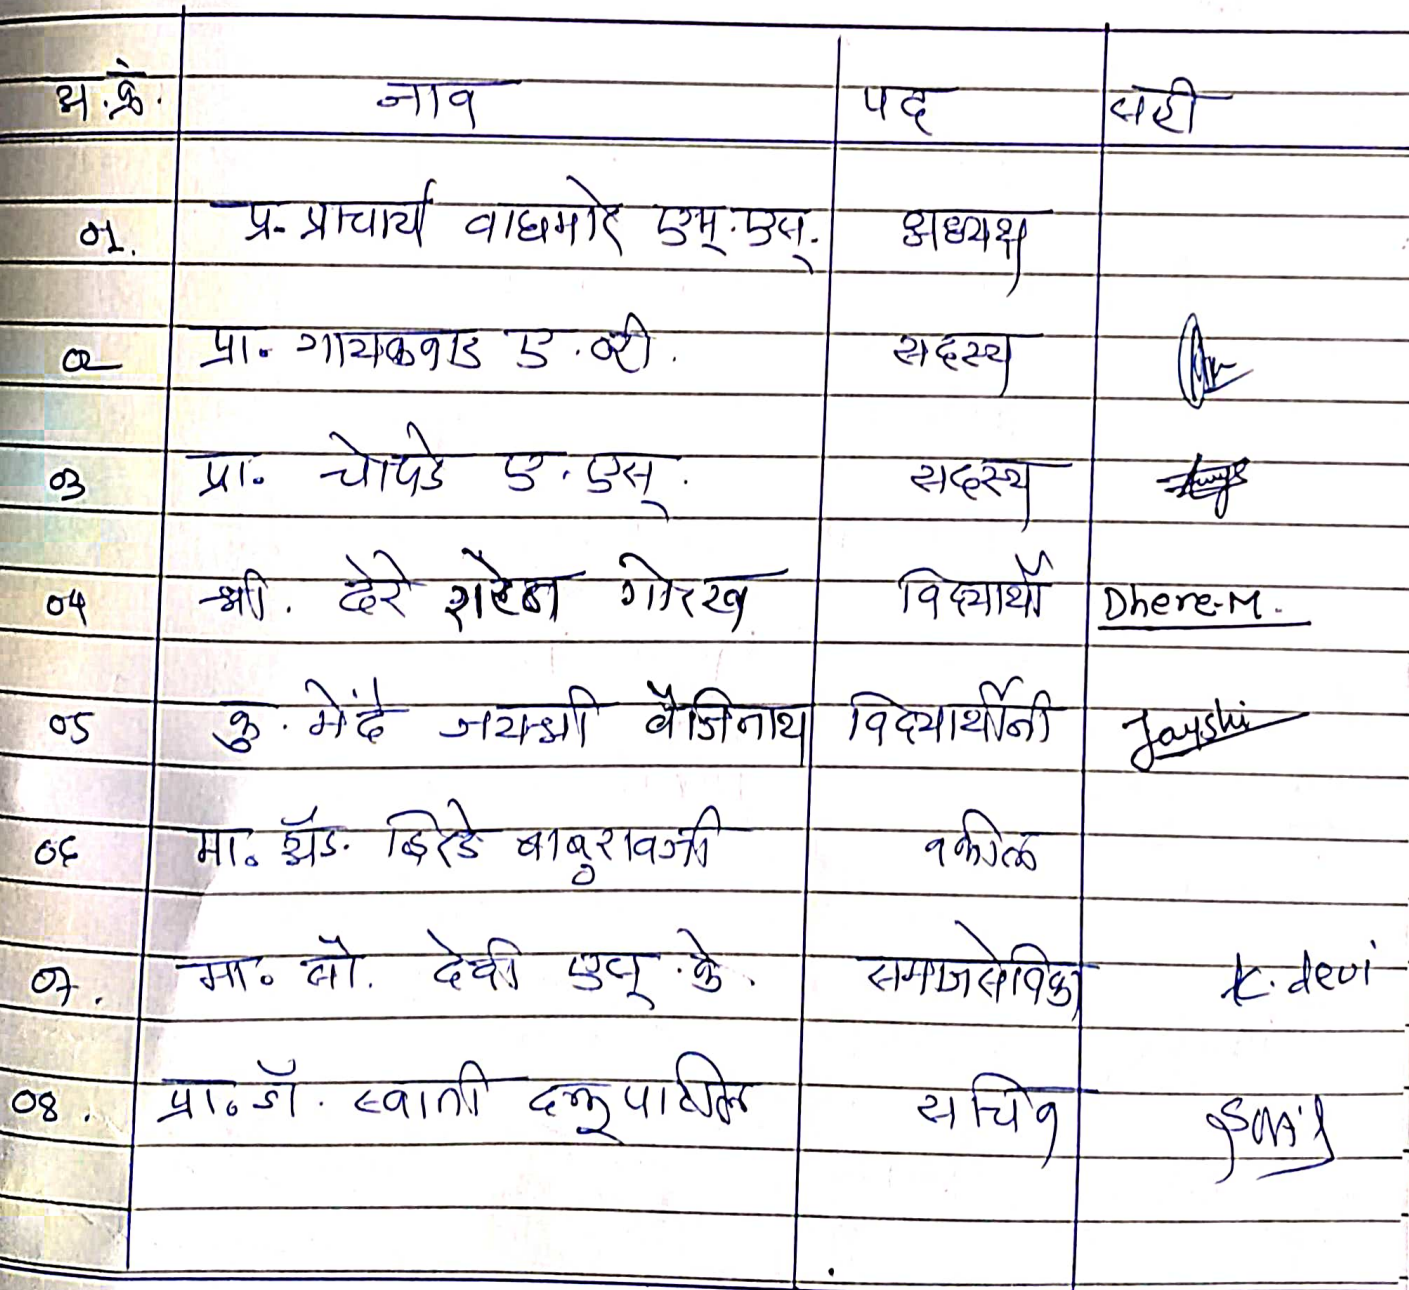 अ.क्रं. नाव पद सही
01. प्र. प्राचार्य वाघमारे एम्.एस्. अध्यक्ष
02 प्रा. गायकवाड ए.व्ही. सदस्य
03 प्रा. चोपडे ए.एस्. सदस्य
04 श्री. ढेरे गोरख विद्यार्थी Dhere.M.
05 कु. मेंदे जयश्री वैजिनाथ विद्यार्थीनी Jayshi
06 मा. अॅड. बाबुरावजी वकील
07. मा. सौ. देवी एल्.के. समाजसेविका K.devi
08. प्रा.डॉ. स्वाती दळू पाटील सचिव